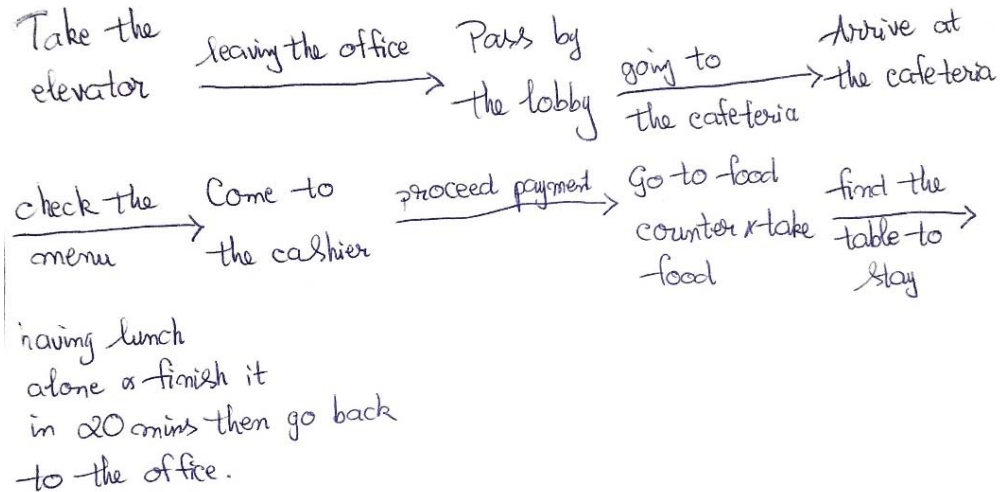 Take the
elevator
leaving the office
Pass by
the lobby
going to
the cafeteria
Arrive at
the cafeteria
check the
menu
Come to
the cashier
proceed payment
Go to food
counter & take
food
find the
table to
stay
having lunch
alone & finish it
in 20 mins then go back
to the office.